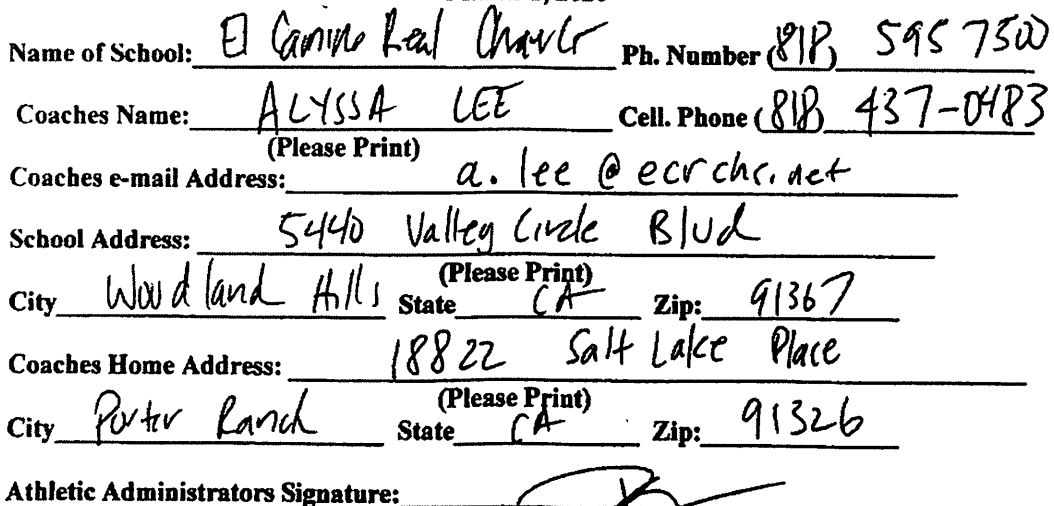 Name of School: El Camino Real Charter Ph. Number (818) 595 7500
Coaches Name: ALYSSA LEE Cell. Phone (818) 437-0483
(Please Print)
Coaches e-mail Address: a.lee@ecrchs.net
School Address: 5440 Valley Circle Blvd
(Please Print)
City Woodland Hills State CA Zip: 91367
Coaches Home Address: 18822 Salt Lake Place
(Please Print)
City Porter Ranch State CA Zip: 91326
Athletic Administrators Signature: